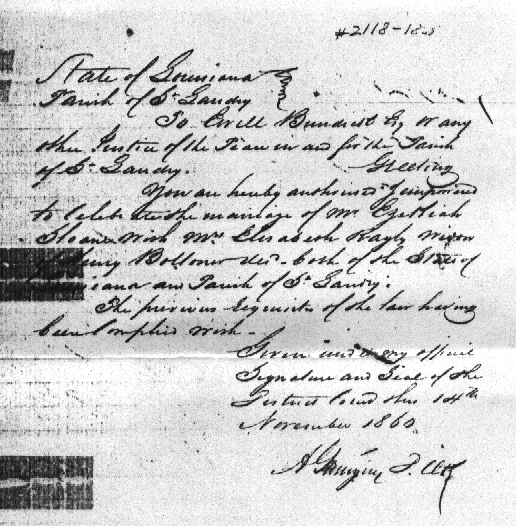 #2118-18
State of Louisiana
Parish of St Landry
To Ewell Bundrest Esq or any
other Justice of the Peace in and for the Parish
of St Landry. Greeting
You are hereby authorised & impowered
to Celebrate the marriage of Mr Ezekiah
Sloane with Mrs Elisabeth widow
of Henry Dec'd. both of the State of
iana and Parish of St Landry.
The previous requisites of the law having
been Complied with.
Given under my official
Signature and Seal of the
District Court this 14th
November 1860